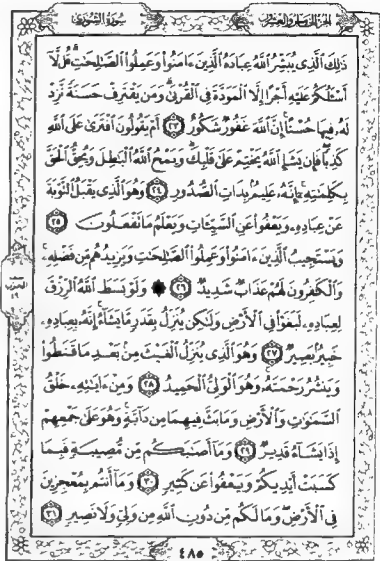 الجزء الخامس والعشرون سورة الشورى
ذَٰلِكَ ٱلَّذِى يُبَشِّرُ ٱللَّهُ عِبَادَهُ ٱلَّذِينَ ءَامَنُوا۟ وَعَمِلُوا۟ ٱلصَّـٰلِحَـٰتِ ۗ قُل لَّآ
أَسْـَٔلُكُمْ عَلَيْهِ أَجْرًا إِلَّا ٱلْمَوَدَّةَ فِى ٱلْقُرْبَىٰ ۗ وَمَن يَقْتَرِفْ حَسَنَةً نَّزِدْ
لَهُۥ فِيهَا حُسْنًا ۚ إِنَّ ٱللَّهَ غَفُورٌ شَكُورٌ ٢٣ أَمْ يَقُولُونَ ٱفْتَرَىٰ عَلَى ٱللَّهِ
كَذِبًا ۖ فَإِن يَشَإِ ٱللَّهُ يَخْتِمْ عَلَىٰ قَلْبِكَ ۗ وَيَمْحُ ٱللَّهُ ٱلْبَـٰطِلَ وَيُحِقُّ ٱلْحَقَّ
بِكَلِمَـٰتِهِۦٓ ۚ إِنَّهُۥ عَلِيمٌۢ بِذَاتِ ٱلصُّدُورِ ٢٤ وَهُوَ ٱلَّذِى يَقْبَلُ ٱلتَّوْبَةَ
عَنْ عِبَادِهِۦ وَيَعْفُوا۟ عَنِ ٱلسَّيِّـَٔاتِ وَيَعْلَمُ مَا تَفْعَلُونَ ٢٥
وَيَسْتَجِيبُ ٱلَّذِينَ ءَامَنُوا۟ وَعَمِلُوا۟ ٱلصَّـٰلِحَـٰتِ وَيَزِيدُهُم مِّن فَضْلِهِۦ ۚ
وَٱلْكَـٰفِرُونَ لَهُمْ عَذَابٌ شَدِيدٌ ٢٦ ۞ وَلَوْ بَسَطَ ٱللَّهُ ٱلرِّزْقَ
لِعِبَادِهِۦ لَبَغَوْا۟ فِى ٱلْأَرْضِ وَلَـٰكِن يُنَزِّلُ بِقَدَرٍ مَّا يَشَآءُ ۚ إِنَّهُۥ بِعِبَادِهِۦ
خَبِيرٌۢ بَصِيرٌ ٢٧ وَهُوَ ٱلَّذِى يُنَزِّلُ ٱلْغَيْثَ مِنۢ بَعْدِ مَا قَنَطُوا۟
وَيَنشُرُ رَحْمَتَهُۥ ۚ وَهُوَ ٱلْوَلِىُّ ٱلْحَمِيدُ ٢٨ وَمِنْ ءَايَـٰتِهِۦ خَلْقُ
ٱلسَّمَـٰوَٰتِ وَٱلْأَرْضِ وَمَا بَثَّ فِيهِمَا مِن دَآبَّةٍ ۚ وَهُوَ عَلَىٰ جَمْعِهِمْ
إِذَا يَشَآءُ قَدِيرٌ ٢٩ وَمَآ أَصَـٰبَكُم مِّن مُّصِيبَةٍ فَبِمَا
كَسَبَتْ أَيْدِيكُمْ وَيَعْفُوا۟ عَن كَثِيرٍ ٣٠ وَمَآ أَنتُم بِمُعْجِزِينَ
فِى ٱلْأَرْضِ ۖ وَمَا لَكُم مِّن دُونِ ٱللَّهِ مِن وَلِىٍّ وَلَا نَصِيرٍ ٣١
٤٨٥